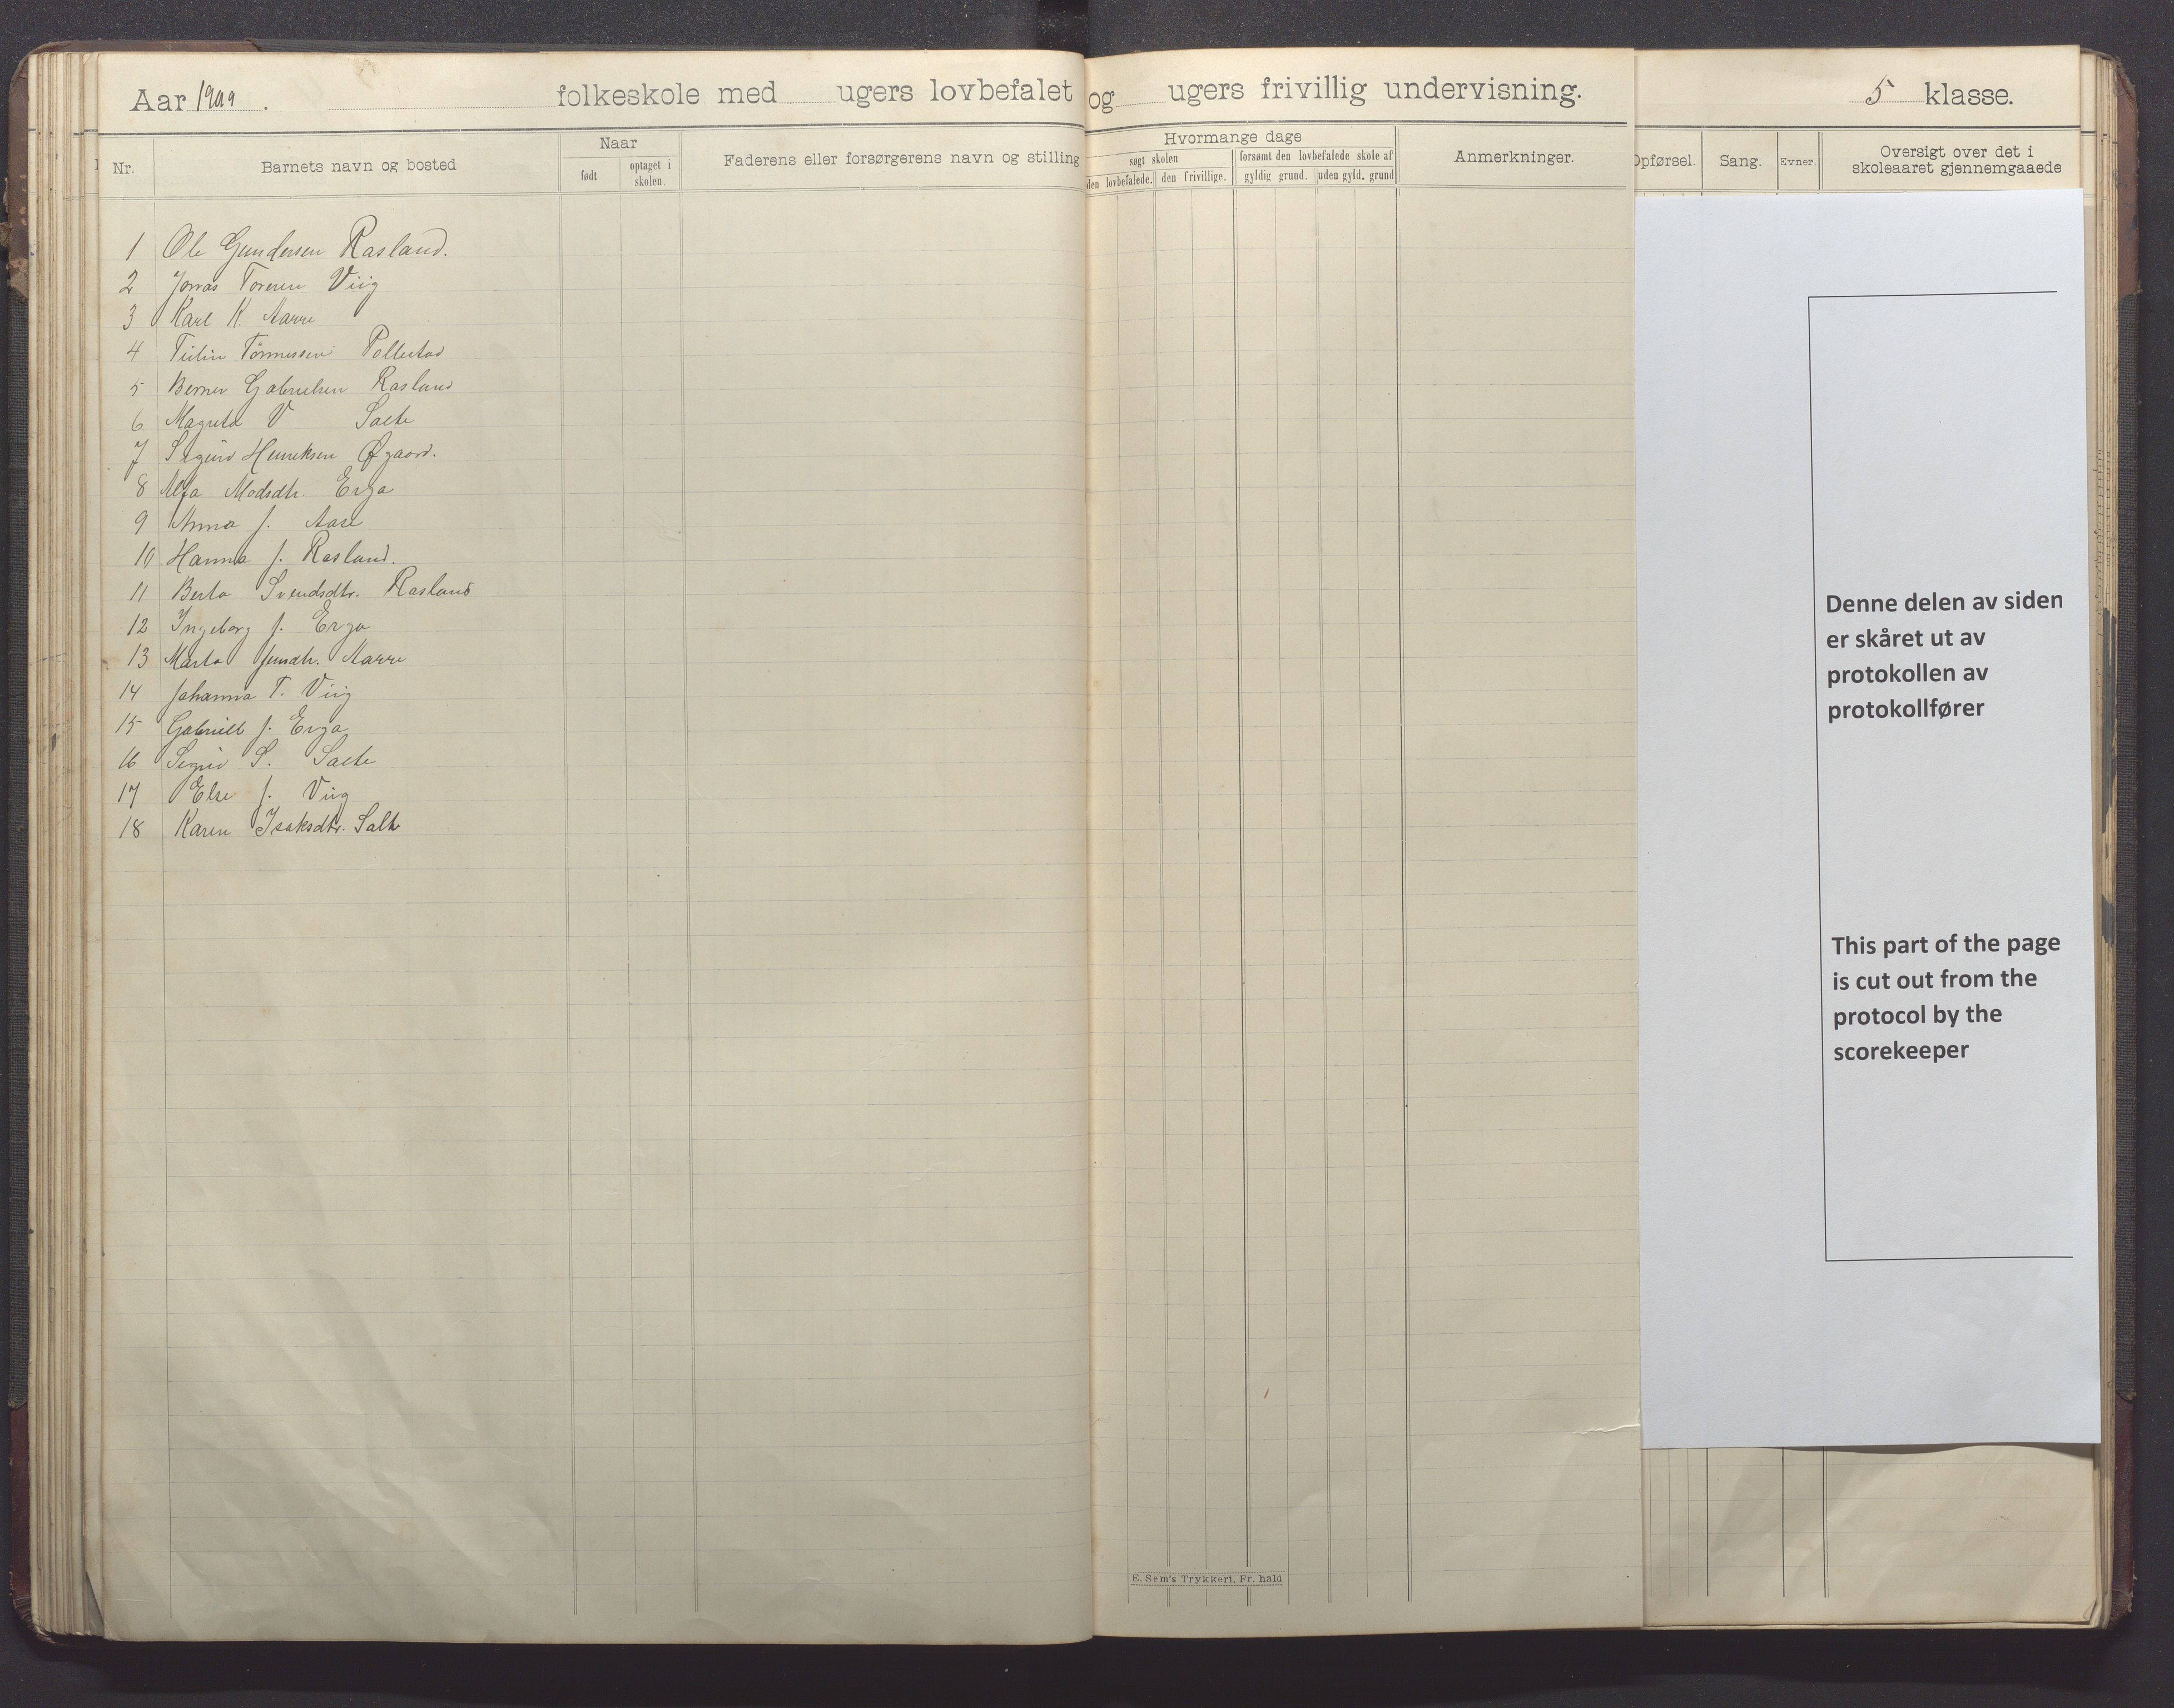 Aar 1909. folkeskole med ugers lovbefalet og ugers frivillig undervisning. 5 klasse.
Nr. Barnets navn og bosted Naar født optaget i skolen. Faderens eller forsørgerens navn og stilling Hvormange dage søgt skolen den lovbefalede. den frivillige. forsømt den lovbefalede skole af gyldig grund. uden gyld. grund Anmerkninger. Opførsel. Sang. Evner. Oversigt over det i skoleaaret gjennemgaaede
1 Ole Gundersen Rasland.
2 Jonas Toresen Viig
3 Karl K. Aarre
4 Tønnessen Pollestad
5 Berner Gabrielsen Rasland
6 Magreta V Salte
7 Sigurd Henriksen Øgaard.
8 Alfa Madsdtr. Erga
9 Anna J. Aase
10 Hanna J. Rasland.
11 Berta Svendsdtr. Rasland
12 Ingeborg J. Erga
13 Marta Jensdtr. Aarre
14 Johanna T. Viig
15 Gabriell J. Erga
16 Sigrid S. Salte
17 Else J. Viig
18 Karen Isaksdtr. Salte
Denne delen av siden
er skåret ut av
protokollen av
protokollfører
This part of the page
is cut out from the
protocol by the
scorekeeper
E. Sem's Trykkeri, Fr. hald